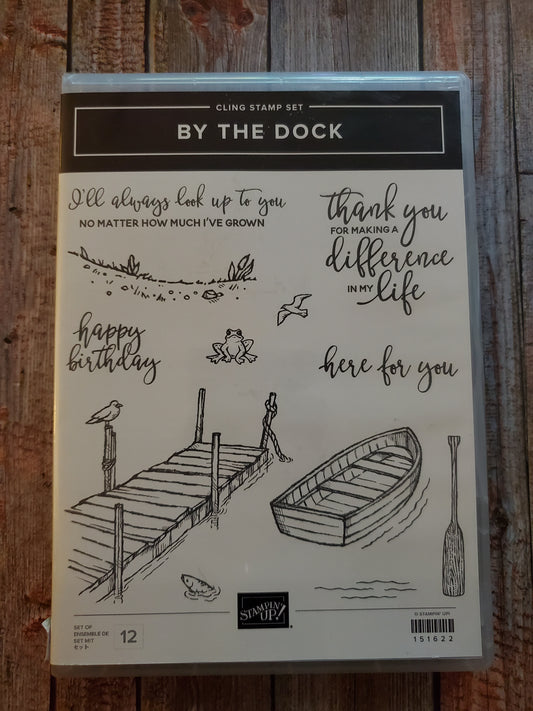 CLING STAMP SET
BY THE DOCK
I'll always look up to you
NO MATTER HOW MUCH I'VE GROWN
thank you
FOR MAKING A
difference
IN MY life
happy
birthday
here for you
SET OF
ENSEMBLE DE
SET MIT
セット
12
STAMPIN' UP!
© STAMPIN' UP!
151622